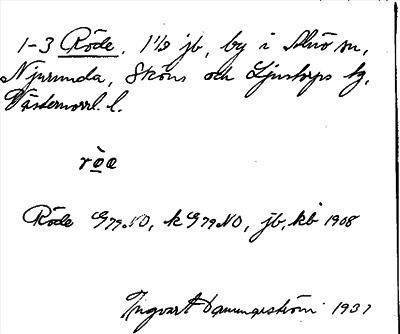 1-3 Röde, 1 1/2 jb, by i Alnö sn,
Njurunda, Sköns och Ljustorps tg,
Västernorrl. l.
röe
Röde G79NO, k G79NO, jb, kb 1908
Ingvart Dannerström 1937